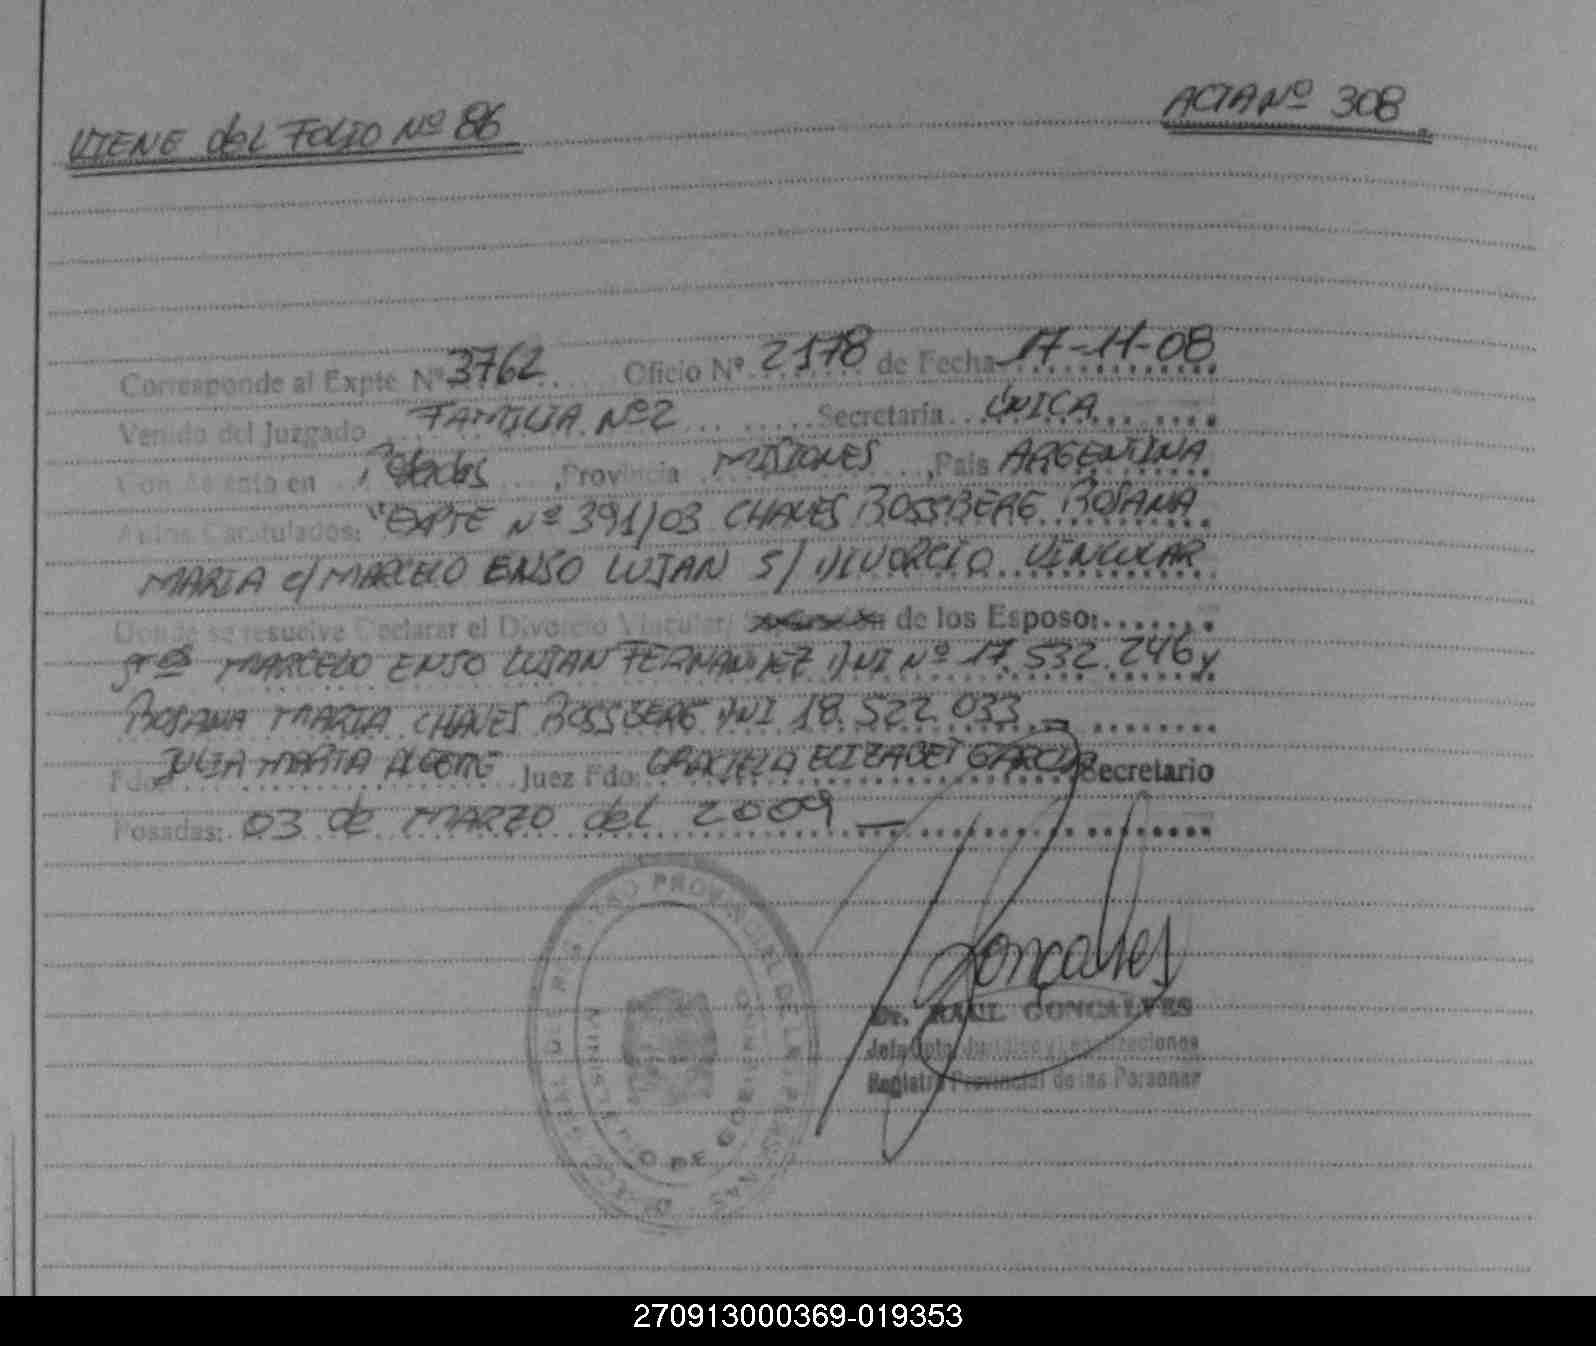 VIENE del FOLIO Nº 86
ACTA Nº 308
Corresponde al Expte Nº 3762 Oficio Nº 2178 de Fecha 17-11-08
Venido del Juzgado FAMILIA Nº 2 Secretaría ÚNICA
Con Asiento en Posadas, Provincia MISIONES, País ARGENTINA
Autos Caratulados: "EXPTE Nº 391/03 CHAVES BOSSBERG ROSANA
MARIA c/ MARCELO ENSO LUJAN S/ DIVORCIO VINCULAR
Donde se resuelve Declarar el Divorcio Vincular/ Separación de los Esposo:
Sres MARCELO ENSO LUJAN FERNANDEZ DNI Nº 17.532.246 y
ROSANA MARIA CHAVES BOSSBERG DNI 18.522.033
Fdo: JULIA MARIA Juez Fdo: GRACIELA ELIZABET GARCIA Secretario
Posadas: 03 de MARZO del 2009
PROVINCIAL DE LAS PERSONAS
MINISTERIO DE GOBIERNO
Goncalves
Dr. RAUL GONCALVES
Jefe Dpto. Jurídico y Legalizaciones
Registro Provincial de las Personas
270913000369-019353